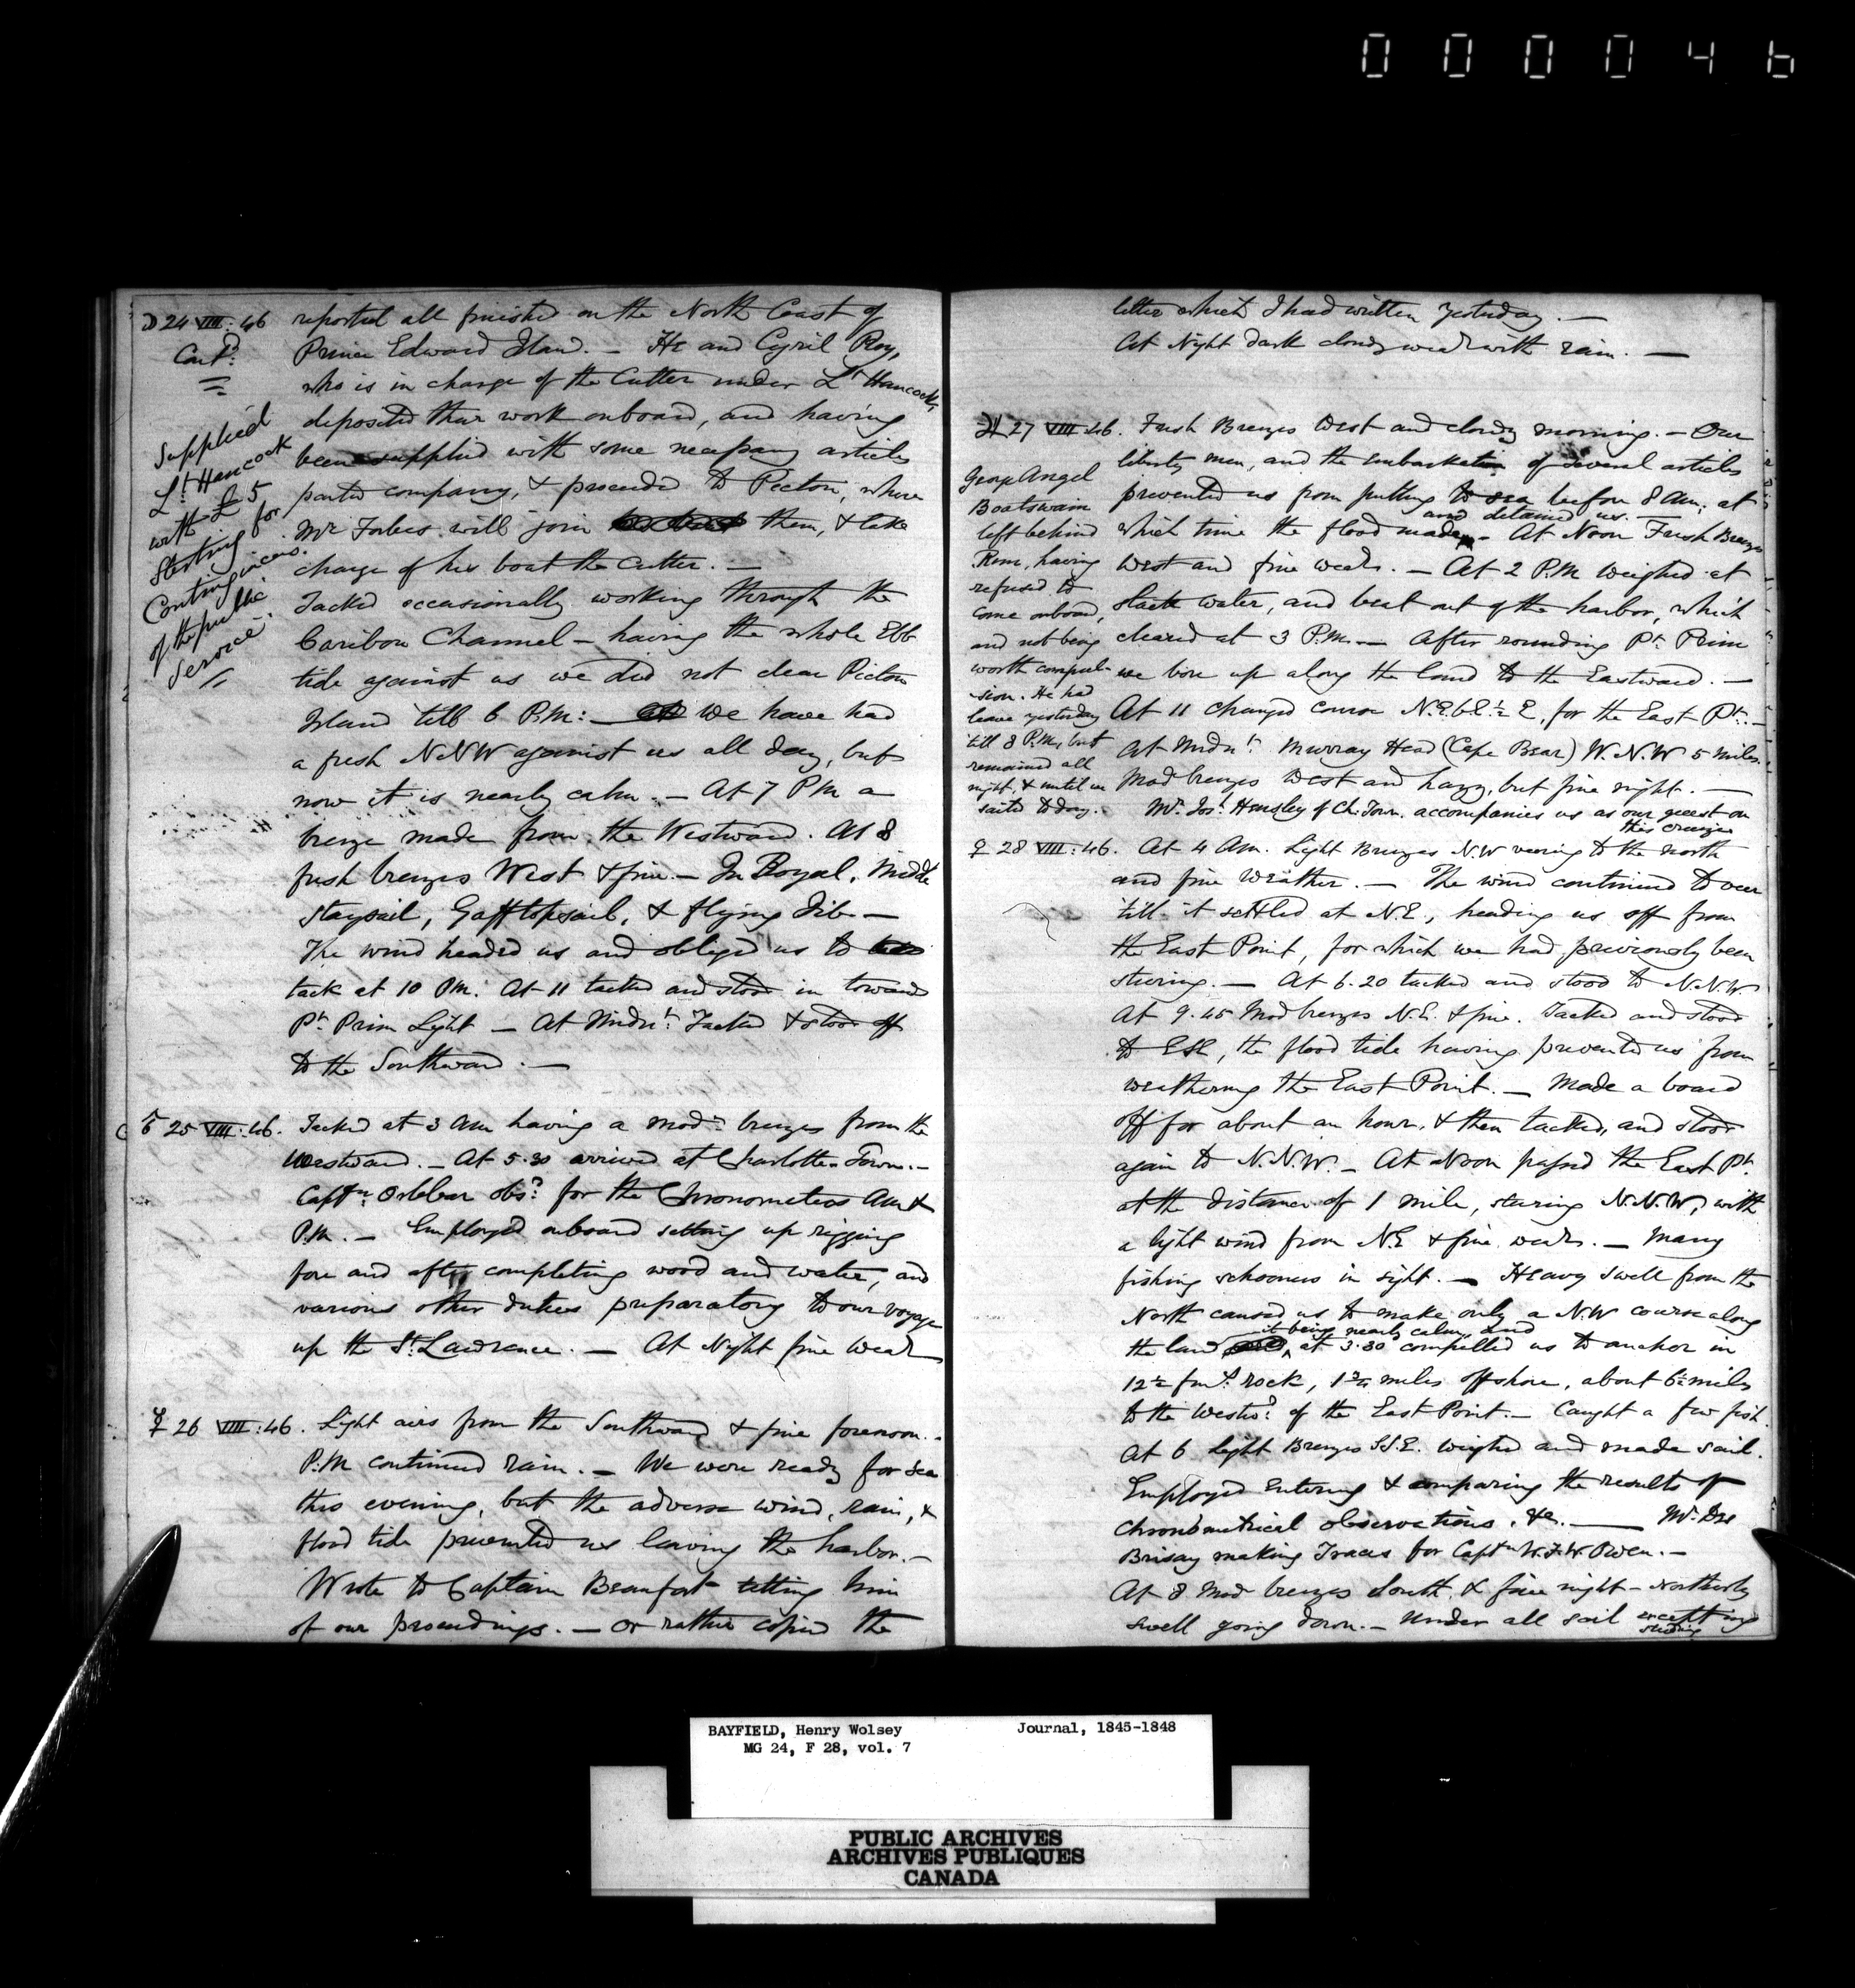 000046
☽ 24 VIII:46 reported all finished on the North Coast of
Contd. Prince Edward Islan. — He and Cyril Roy,
who is in charge of the Cutter under Lt Hancock,
deposited their work onboard, and having
been supplied with some necessary articles
parted company, & proceeded to Pictou, where
Mr Forbes will join them, & take
charge of his boat the Cutter. —
Supplied
Lt Hancock
with £5
Sterling for
Contingencies
of the public
Service
Tacked occasionally working through the
Caribou Channel — having the whole Ebb
tide against us we did not clear Pictou
Island till 6 P.M: — we have had
a fresh N.N.W against us all day, but
now it is nearly calm. — At 7 P.M a
breeze made from the Westward. At 8
fresh breezes West & fine. — In Royal, Middle
staysail, Gafftopsail, & flying Jib —
The wind headed us and obliged us to
tack at 10 P.M. At 11 tacked and stood in towards
Pt. Prim Light — At Midnt. Tacked & stood off
to the Southward. —
♂ 25 VIII:46. Tacked at 3 Am having a modt. breeze from the
Westward. — At 5.30 arrived at Charlotte Town. —
Captn. Orlebar obsd. for the Chronometers Am &
P.M. — Employed onboard setting up rigging
fore and aft, completing wood and water, and
various other duties preparatory to our voyage
up the St. Lawrence. — At Night fine weather
☿ 26 VIII:46. Light airs from the Southward & fine forenoon. -
P.M continued rain. — We were ready for sea
this evening, but the adverse wind, rain, &
flood tide prevented us leaving the harbor. —
Wrote to Captain Beaufort telling him
of our proceedings. — or rather copied the
letter which I had written yesterday. —
At Night dark cloudy wear with rain. —
♃ 27 VIII:46. Fresh Breezes West and cloudy morning. — Our
liberty men, and the embarkation of several articles
prevented us from putting to sea before 8 Am; at
and detained us. —
which time the flood made. — At Noon Fresh Breezes
West and fine wear. — At 2 P.M weighed at
slack water, and beat out of the harbor, which
cleared at 3 P.M. — After rounding Pt. Prim
we bore up along the land to the Eastward. —
At 11 changed course N.E.b.E.½ E. for the East Pt. —
At Midnt. Murray Head (Cape Bear) W.N.W 5 miles.
Mod breezes West and hazy, but fine night. —
Mr. Josh. Hensley of Ch. Town. accompanies us as our guest on
this cruize
George Angel
Boatswain
left behind
Rum, having
refused to
come onboard,
and not being
worth compul-
sion. He had
leave yesterday
till 8 P.M, but
remained all
night, & until we
sailed to day.
♀ 28 VIII:46. At 4 Am. Light Breezes N.W veering to the north
and fine weather. — The wind continued to veer
till it settled at N.E., heading us off from
the East Point, for which we had previously been
steering. — At 6.20 tacked and stood to N.N.W.
At 9.45 Mod breezes N.E. & fine. Tacked and stood
to ESE, the flood tide having prevented us from
weathering the East Point. — Made a board
off for about an hour, & then tacked, and stood
again to N.N.W. — At Noon passed the East Pt.
at the distance of 1 mile, steering N.N.W, with
a light wind from N.E & fine wear. — Many
fishing schooners in sight. — Heavy swell from the
North caused us to make only a N.W course along
it being nearly calm, and
the land at 3.30 compelled us to anchor in
12½ fms. rock, 1¾ miles offshore, about 6½ miles
to the Westwd. of the East Point. — Caught a few fish.
At 6 Light Breezes S.S.E. weighed and made sail.
Employed entering & comparing the results of
chronometrical observations, &c. — Mr. Des
Brisay making Traces for Captn W.F.W. Owen. —
At 8 Mod breezes South, & fine night — Northerly
swell going down. — Under all sail excepting
studding
BAYFIELD, Henry Wolsey Journal, 1845-1848
MG 24, F 28, vol. 7
PUBLIC ARCHIVES
ARCHIVES PUBLIQUES
CANADA